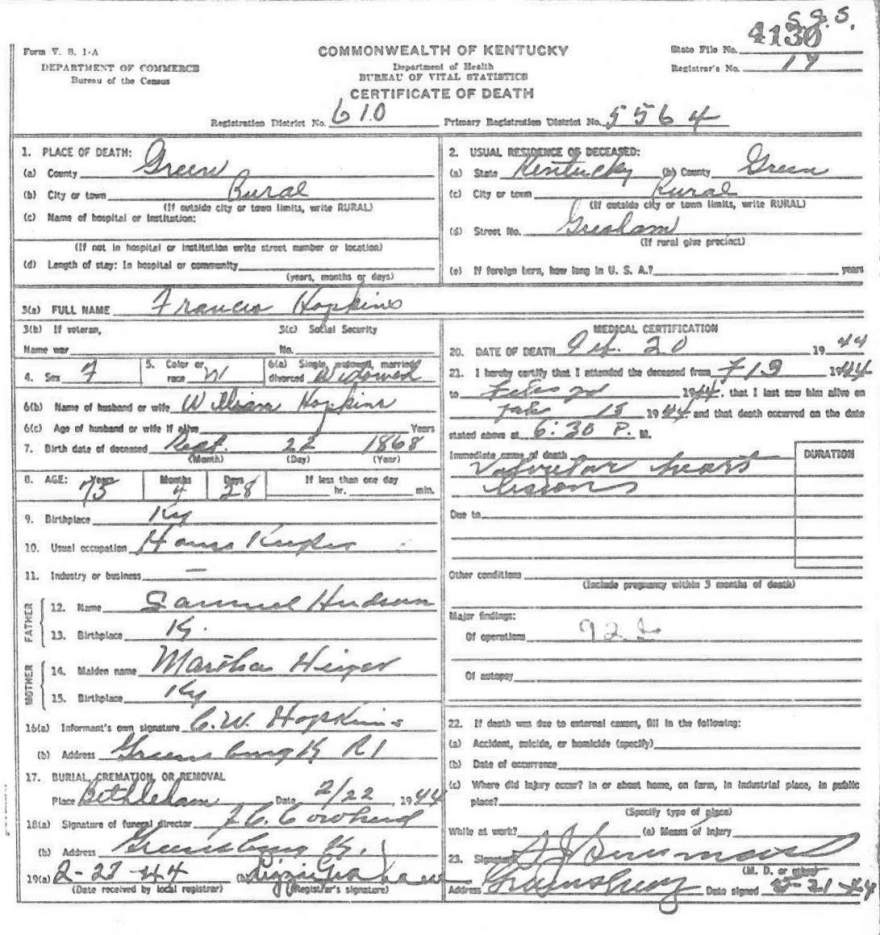 S.G.S.
Form V. S. 1-A
COMMONWEALTH OF KENTUCKY
State File No. 4130
DEPARTMENT OF COMMERCE
Department of Health
Registrar's No. 19
Bureau of the Census
BUREAU OF VITAL STATISTICS
CERTIFICATE OF DEATH
Registration District No. 610 Primary Registration District No. 5564
1. PLACE OF DEATH:
(a) County Green
(b) City or town Rural
(If outside city or town limits, write RURAL)
(c) Name of hospital or institution:
(If not in hospital or institution write street number or location)
(d) Length of stay: In hospital or community
(years, months or days)
2. USUAL RESIDENCE OF DECEASED:
(a) State Kentucky (b) County Green
(c) City or town Rural
(If outside city or town limits, write RURAL)
(d) Street No. Gresham
(If rural give precinct)
(e) If foreign born, how long in U. S. A.? years
3(a) FULL NAME Francis Hopkins
3(b) If veteran, 3(c) Social Security
Name war No.
4. Sex F 5. Color or race W 6(a) Single, widowed, married, divorced Widowed
6(b) Name of husband or wife William Hopkins
6(c) Age of husband or wife if alive Years
7. Birth date of deceased Sept. 22 1868
(Month) (Day) (Year)
8. AGE: Years 75 Months 4 Days 28 If less than one day hr. min.
9. Birthplace Ky
10. Usual occupation House Keeper
11. Industry or business —
FATHER
12. Name Samuel Hudson
13. Birthplace K.
MOTHER
14. Maiden name Martha
15. Birthplace Ky
16(a) Informant's own signature C.W. Hopkins
(b) Address Greensburg K R1
17. BURIAL, CREMATION, OR REMOVAL
Place Bethleham Date 2/22 1944
18(a) Signature of funeral director J.C. Cowherd
(b) Address Greensburg K.
19(a) 2-23-44 (b) Lizzie Graham
(Date received by local registrar) (Registrar's signature)
MEDICAL CERTIFICATION
20. DATE OF DEATH Feb. 20 1944
21. I hereby certify that I attended the deceased from 1944
to 1944, that I last saw him alive on
Feb 15 1944 and that death occurred on the date
stated above at 6:30 P. M.
Immediate cause of death DURATION
Valvular heart
lesions
Due to
Other conditions
(Include pregnancy within 3 months of death)
Major findings:
Of operations 92
Of autopsy
22. If death was due to external causes, fill in the following:
(a) Accident, suicide, or homicide (specify)
(b) Date of occurrence
(c) Where did injury occur? In or about home, on farm, in industrial place, in public
place?
(Specify type of place)
While at work? (e) Means of injury
23. Signature S J Simmons
(M. D. or other)
Address Greensburg Date signed 2-21-44